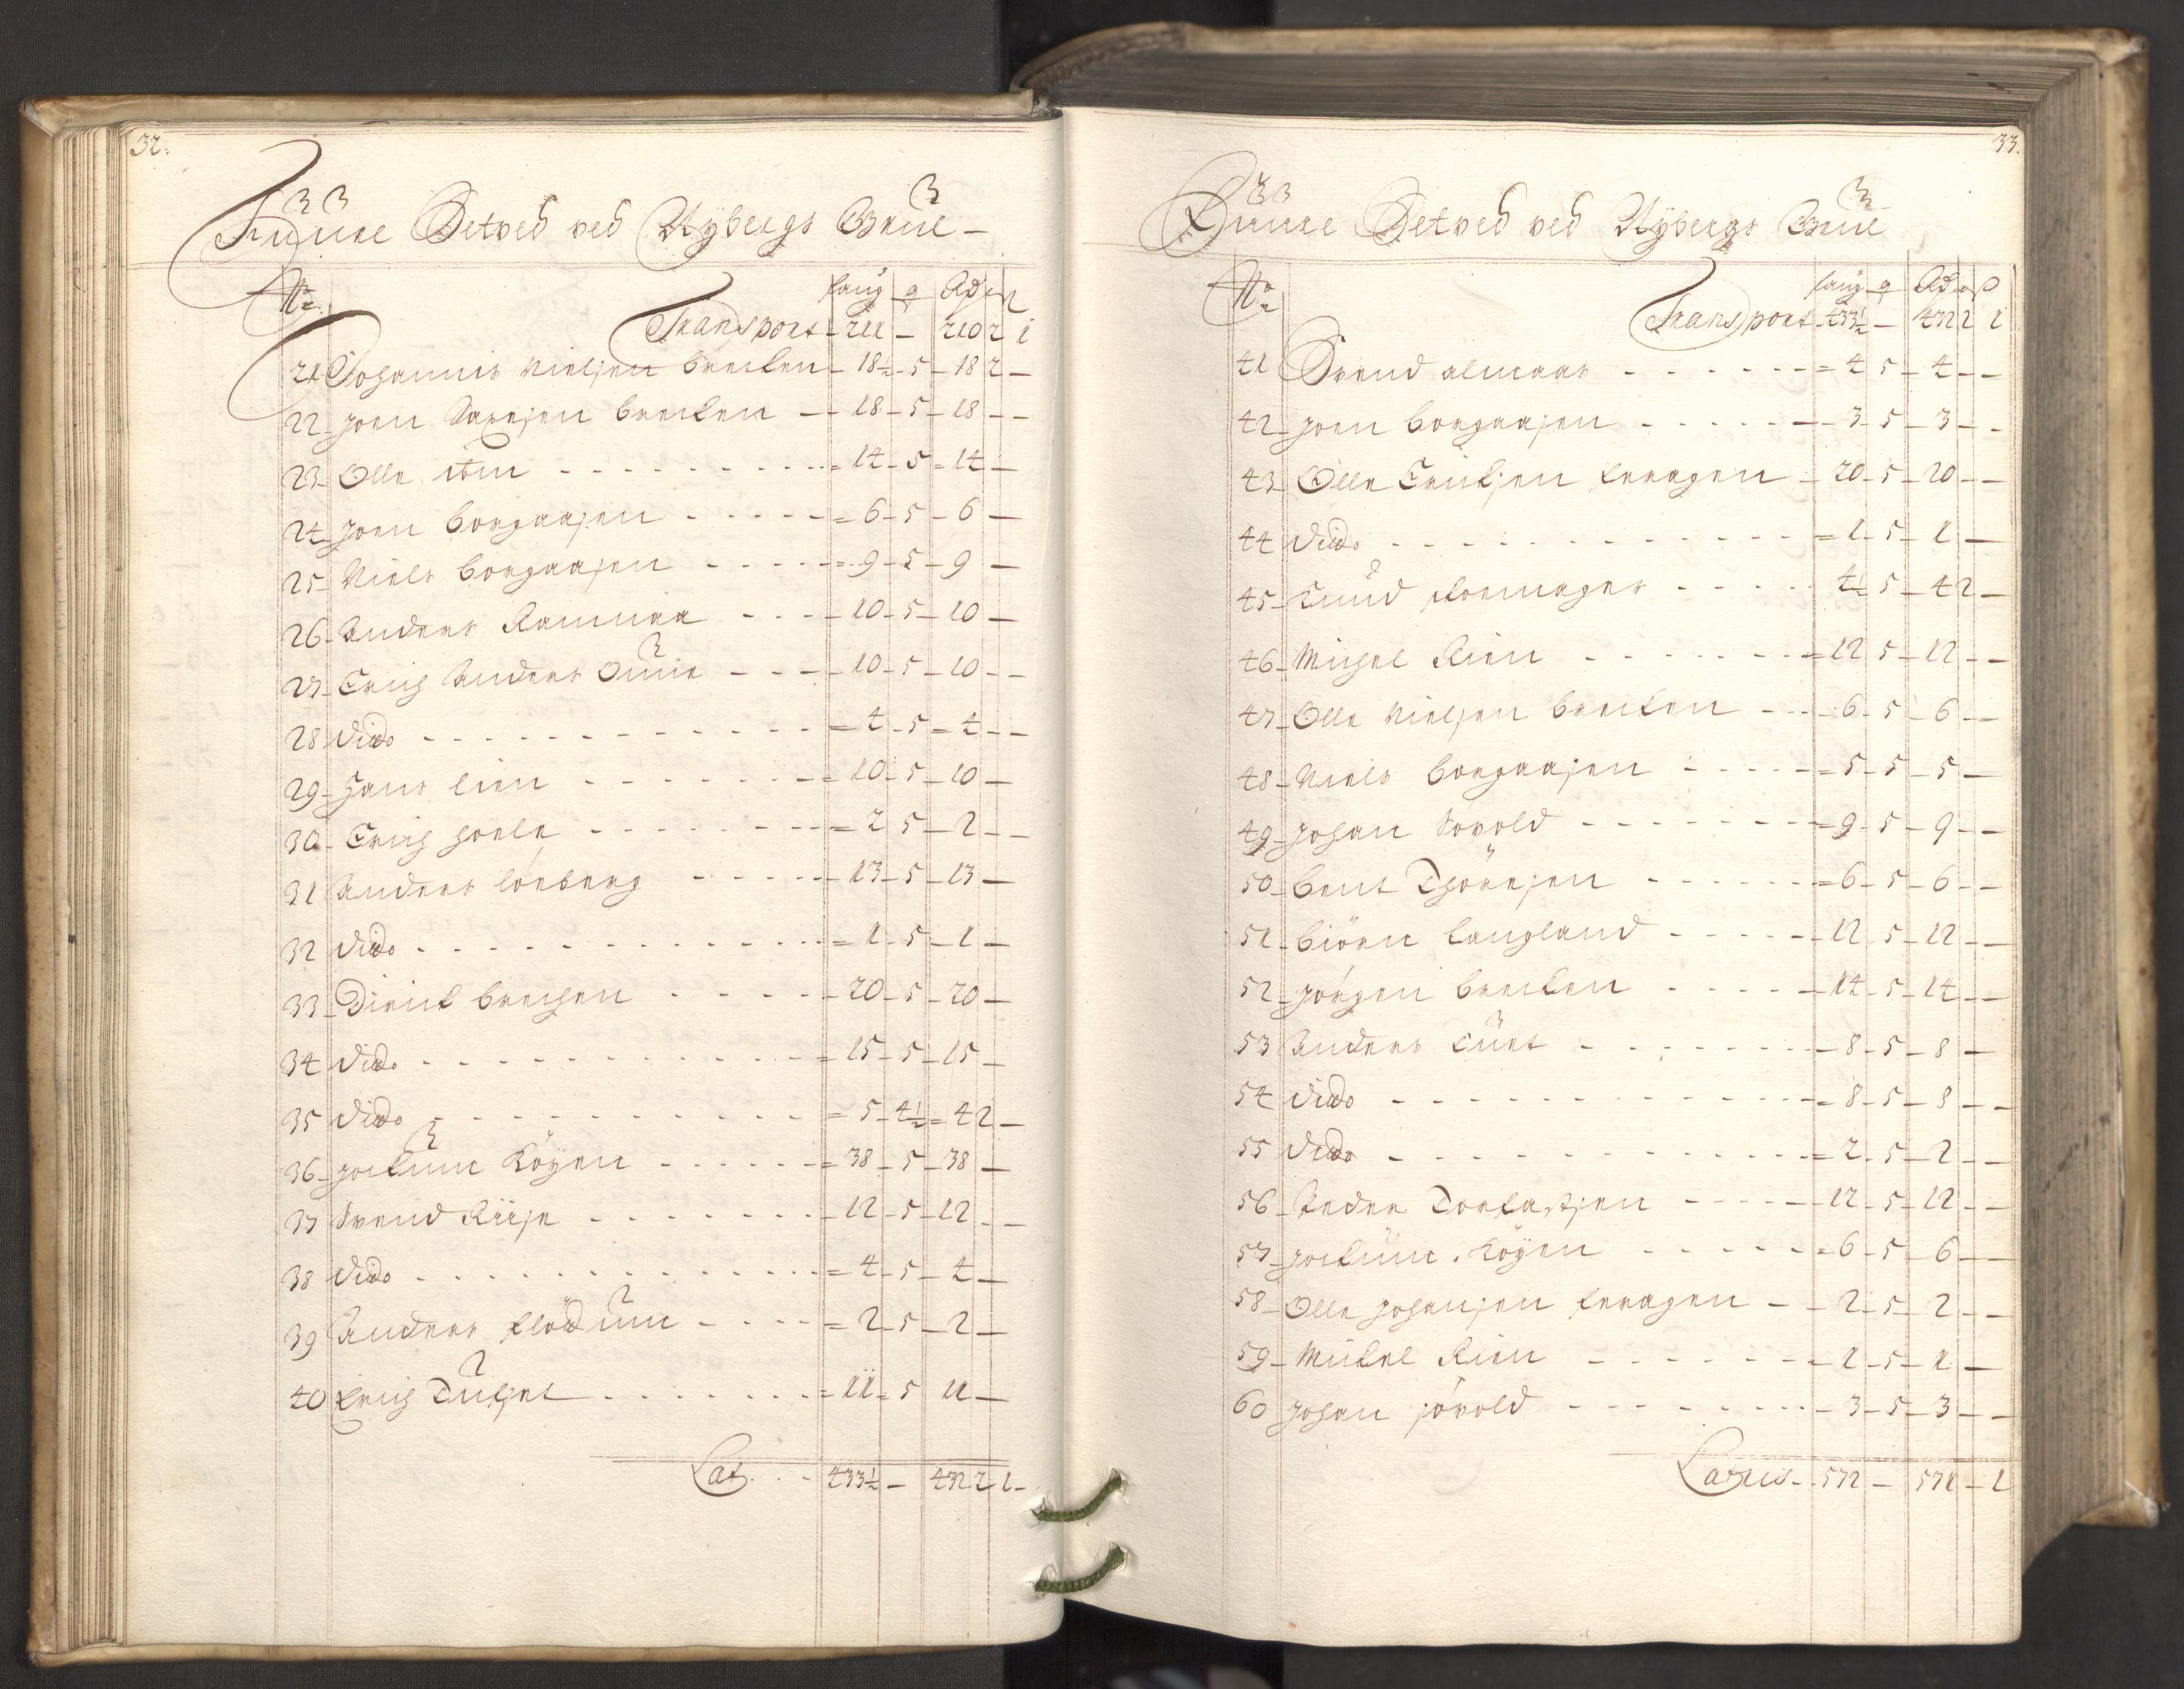 32.
Fuure Setved ved Nybergs Grue
No faug q Rd ort ß
Transport 211 — 210 2 1
21 Johannis Nielsen Brecken 18½ 5 18 2 —
22 Joen Saxesen Brecken 18 5 18 — —
23 Olle 14 5 14 —
24 Joen Borgaasen 6 5 6 —
25 Niels Borgaasen 9 5 9 —
26 Anders Ramaae 10 5 10 —
27 Erich Anders Ouue 10 5 10 — —
28 dido 4 5 4 — —
29 Hans Lien 10 5 10 —
30 Erich 2 5 2 — —
31 Anders Lönberg 13 5 13 —
32 dido 1 5 1 —
33 Dirick Brechen 20 5 20 —
34 dido 15 5 15 —
35 dido 5 4½ 4 2 —
36 Jockum Köyen 38 5 38 —
37 Svend Riise 12 5 12 — —
38 dido 4 5 4 —
39 Anders Flödum 2 5 2 —
40 Erich 11 5 11 —
Lat. 433½ — 432 2 1
33.
Fuure Setved ved Nybergs Grue
No faug q Rd ort ß
Transport 433½ — 432 2 1
41 Svend Almaas 4 5 4 — —
42 Joen Borgaasen 3 5 3 — —
43 Olle Ericksen Kraagen 20 5 20 — —
44 dido 1 5 1 —
45 Knud Kormager 4½ 5 4 2 —
46 Michel Rien 12 5 12 — —
47 Olle Nielsen Brecken 6 5 6 — —
48 Niels Borgaasen 5 5 5 —
49 Johan Sovold 9 5 9 — —
50 Bent Thöresen 6 5 6 — —
51 Biörn Langland 12 5 12 — —
52 Jörgen Brecken 14 5 14 — —
53 Anders Kurt 8 5 8 —
54 dido 8 5 8 — —
55 dido 2 5 2 — —
56 Peder Torkarsen 12 5 12 — —
57 Jockum Köyen 6 5 6 —
58 Olle Johansen Kraagen 2 5 2 — —
59 Mickel Rien 1 5 1 —
60 Johan Sövold 3 5 3 — —
Latus 572 — 571 — 1